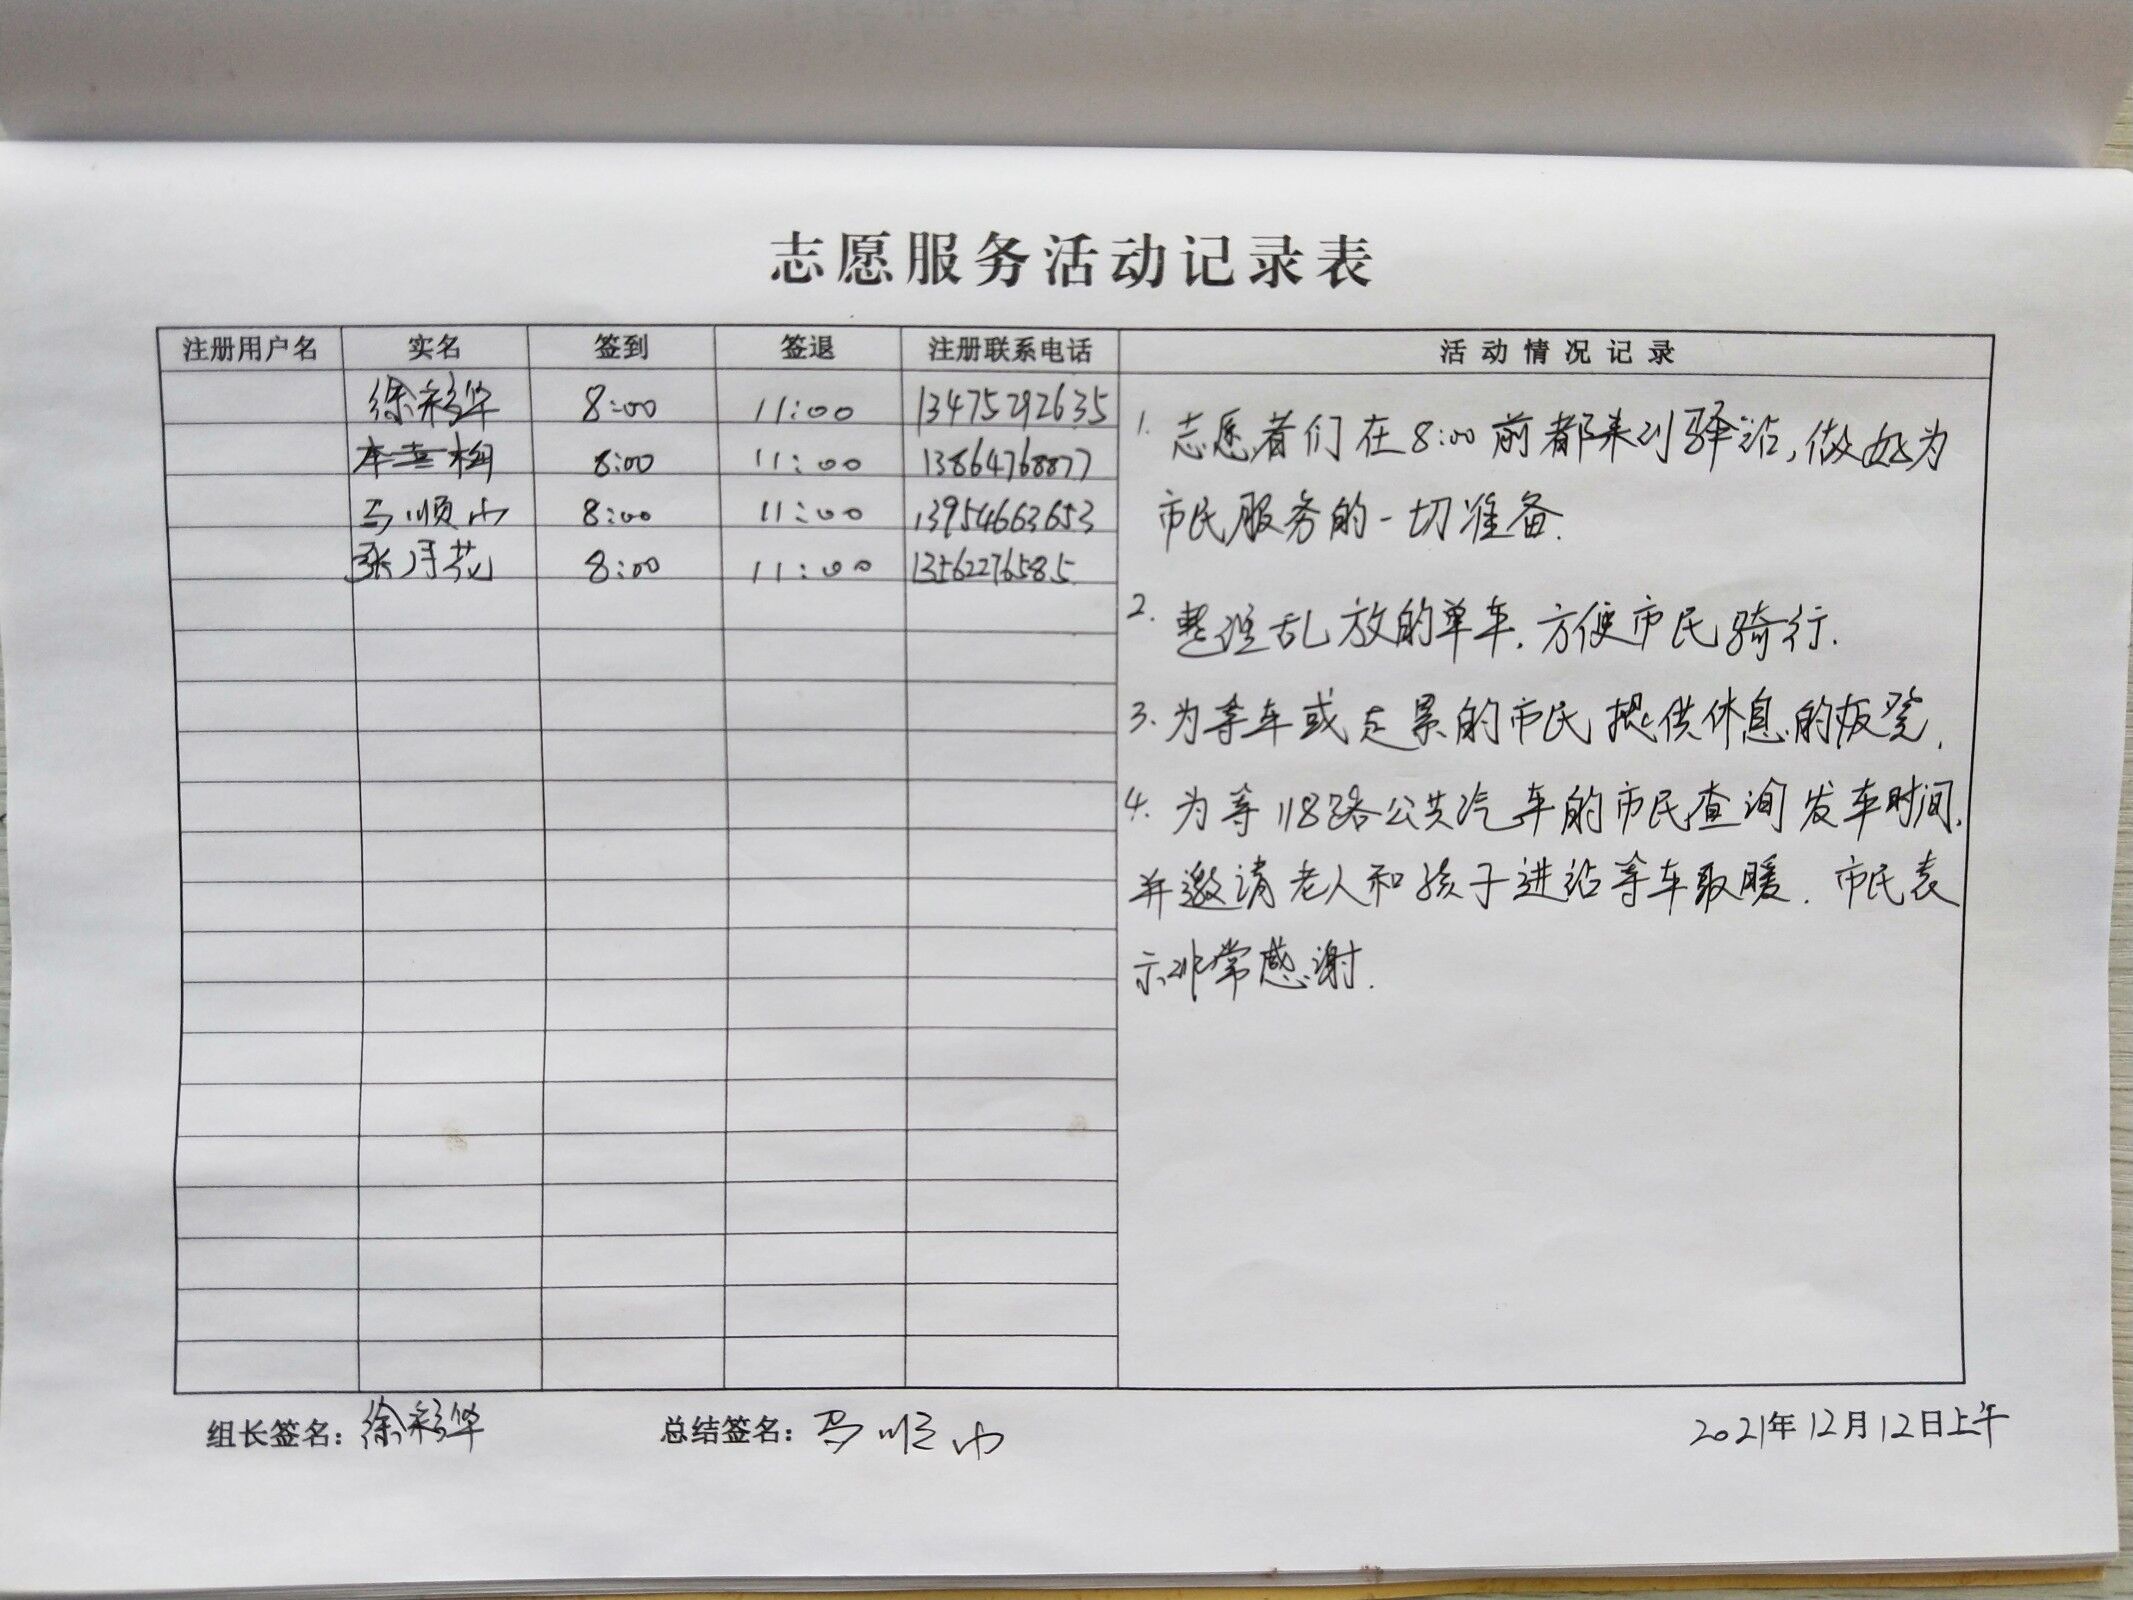 志愿服务活动记录表
注册用户名 实名 签到 签退 注册联系电话 活动情况记录
徐彩华 8:00 11:00 13475292635
8:00 11:00 13864768877
马顺山 8:00 11:00 13954663653
张月花 8:00 11:00 13562276585
1. 志愿者们在8:00前都来到驿站,做好为
市民服务的一切准备.
2. 整理乱放的单车.方便市民骑行.
3. 为等车或走累的市民提供休息的板凳.
4. 为等118路公共汽车的市民查询发车时间.
并邀请老人和孩子进站等车取暖.市民表
示非常感谢.
组长签名: 徐彩华 总结签名: 马顺山 2021年12月12日上午